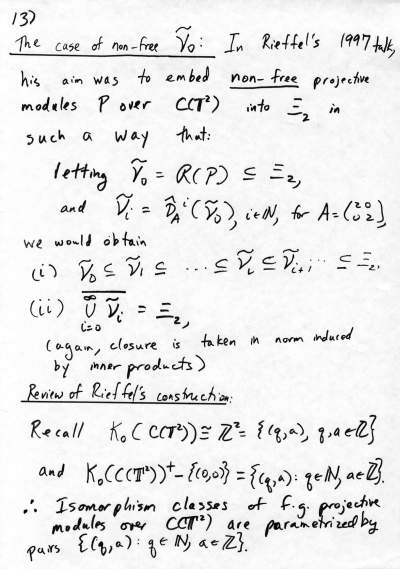 13)
The case of non-free Ṽ₀: In Rieffel's 1997 talk,
his aim was to embed non-free projective
modules P over C(𝕋²) into Ξ₂ in
such a way that:
letting Ṽ₀ = R(P) ⊆ Ξ₂,
and Ṽᵢ = D̂_Aⁱ(Ṽ₀), i∈ℕ, for A=(2 0 / 0 2),
we would obtain
(i) Ṽ₀ ⊆ Ṽ₁ ⊆ ··· ⊆ Ṽᵢ ⊆ Ṽᵢ₊₁ ··· ⊆ Ξ₂.
(ii) \overline{⋃_{i=0}^∞ Ṽᵢ} = Ξ₂,
(again, closure is taken in norm induced
by inner products)
Review of Rieffel's construction:
Recall K₀(C(𝕋²)) ≅ ℤ² = {(q,a), q,a∈ℤ}
and K₀(C(𝕋²))⁺ - {(0,0)} = {(q,a): q∈ℕ, a∈ℤ}.
∴ Isomorphism classes of f.g. projective
modules over C(𝕋²) are parametrized by
pairs {(q,a): q∈ℕ, a∈ℤ}.